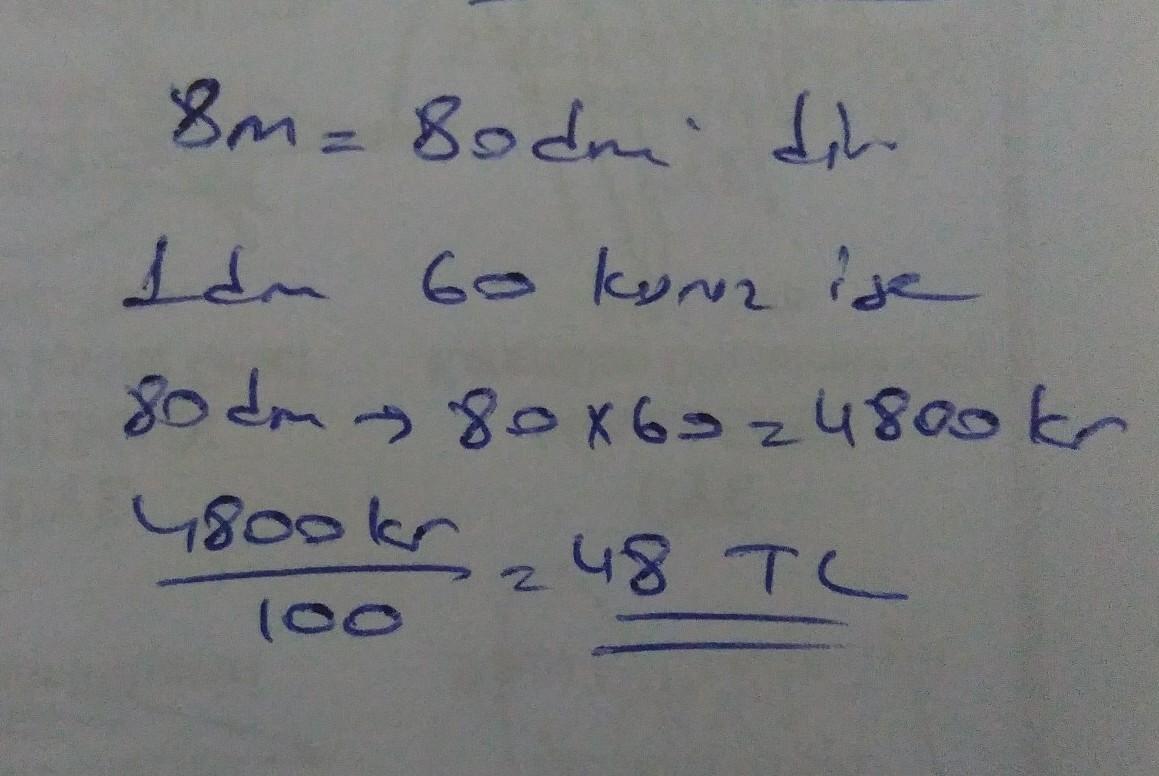 8m = 80 dm dir
1 dm 60 kuruş ise
80 dm → 80 x 60 = 4800 kr
4800 kr / 100 = 48 TL